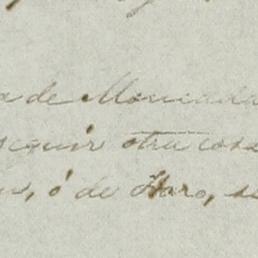 a de Moncada
seguir otra cosa
ó de Haro, se